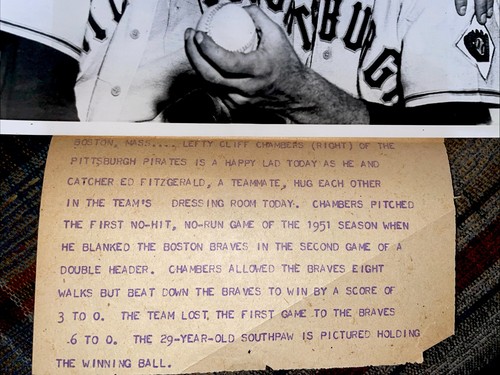 TTSBURGH
BOSTON, MASS.... LEFTY CLIFF CHAMBERS (RIGHT) OF THE
PITTSBURGH PIRATES IS A HAPPY LAD TODAY AS HE AND
CATCHER ED FITZGERALD, A TEAMMATE, HUG EACH OTHER
IN THE TEAM'S DRESSING ROOM TODAY. CHAMBERS PITCHED
THE FIRST NO-HIT, NO-RUN GAME OF THE 1951 SEASON WHEN
HE BLANKED THE BOSTON BRAVES IN THE SECOND GAME OF A
DOUBLE HEADER. CHAMBERS ALLOWED THE BRAVES EIGHT
WALKS BUT BEAT DOWN THE BRAVES TO WIN BY A SCORE OF
3 TO 0. THE TEAM LOST, THE FIRST GAME TO THE BRAVES
6 TO 0. THE 29-YEAR-OLD SOUTHPAW IS PICTURED HOLDING
THE WINNING BALL.